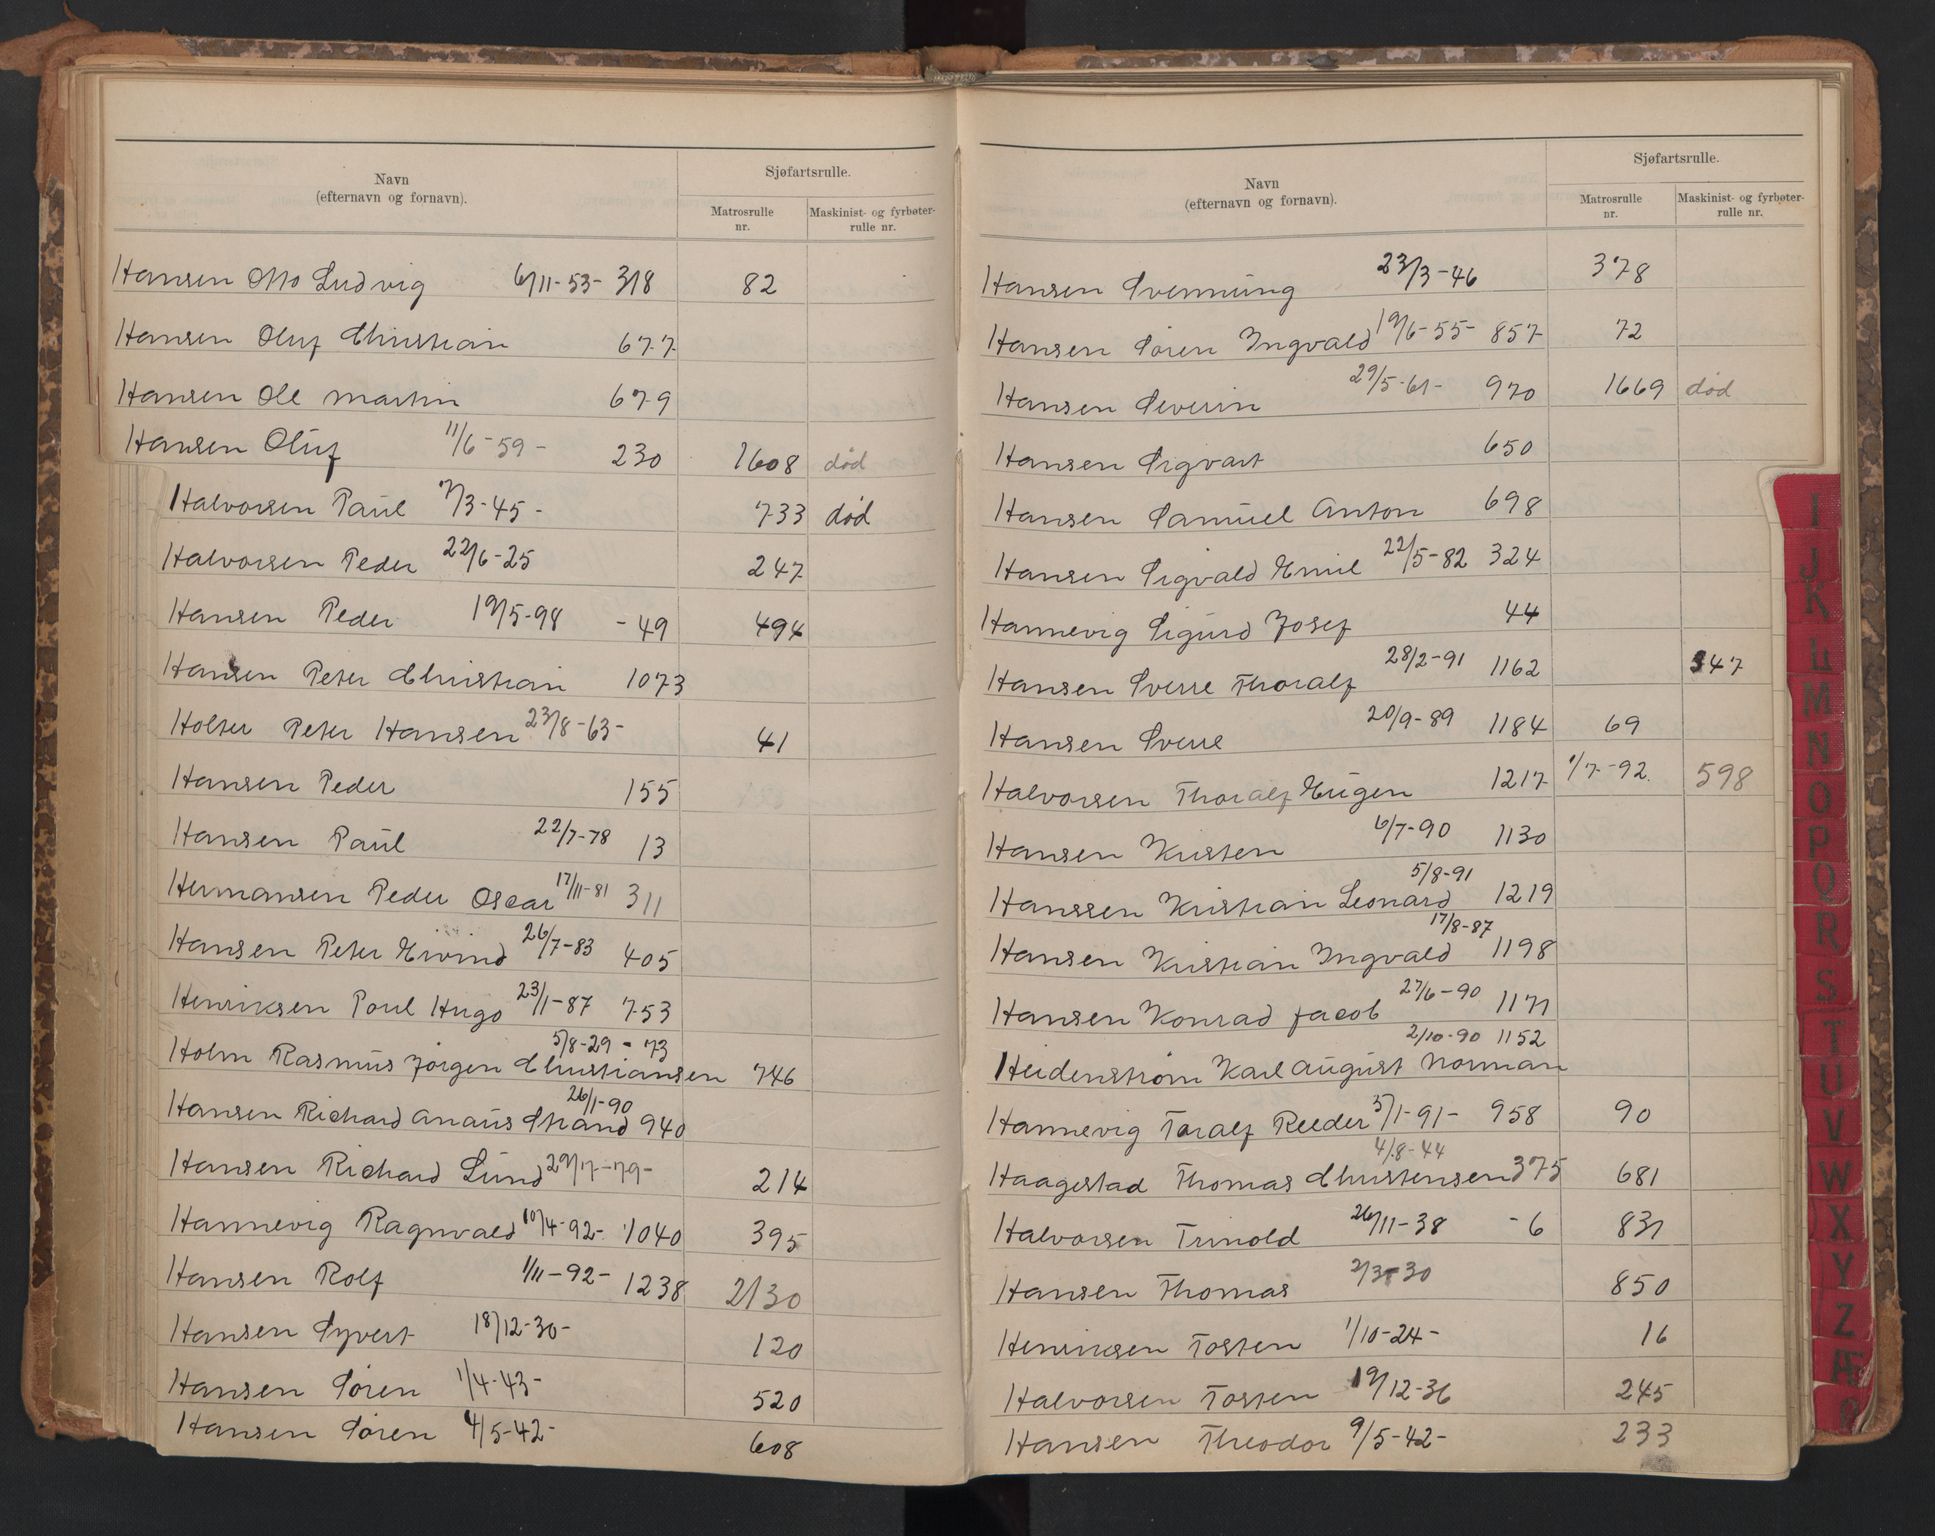 Navn
(efternavn og fornavn).
Sjøfartsrulle.
Matrosrulle
nr.
Maskinist- og fyrbøter-
rulle nr.
Hansen Otto Ludvig 6/11-53- 318 82
Hansen Oluf Christian 677
Hansen Ole Martin 679
Hansen Oluf 11/6-59- 230 1608 død
Halvorsen Paul 7/3-45- 733 død
Halvorsen Peder 22/6-25 247
Hansen Peder 19/5-98 -49 494
Hansen Peter Christian 1073
Holter Peter Hansen 23/8-63- 41
Hansen Peder 155
Hansen Paul 22/7-78 13
Hermansen Peder Oscar 17/11-81 311
Hansen Peter Eivind 26/7-83 405
Henriksen Poul Hugo 23/1-87 753
5/8-29 - 73
Holm Rasmus Jørgen Christiansen 746
26/1-90
Hansen Richard Anaus Strand 940
Hansen Richard Lund 29/7-79- 214
Hannevig Ragnvald 10/4-92- 1040 395
Hansen Rolf 1/11-92- 1238 2130
Hansen Syvert 18/12-30- 120
Hansen Søren 1/4-43- 520
Hansen Søren 4/5-42- 608
Navn
(efternavn og fornavn).
Sjøfartsrulle.
Matrosrulle
nr.
Maskinist- og fyrbøter-
rulle nr.
Hansen Svennung 23/3-46 378
Hansen Søren Ingvald 19/6-55- 857 72
Hansen Severin 29/5-61- 970 1669 død
Hansen Sigvart 650
Hansen Samuel Anton 698
Hansen Sigvald Emil 22/5-82 324
Hannevig Sigurd Josef 44
Hansen Sverre Thoralf 28/2-91 1162 347
Hansen Sverre 20/9-89 1184 69
Halvorsen Thoralf Eugen 1217 1/7-92. 598
Hansen Kristen 6/7-90 1130
5/8-91
Hanssen Kristian Leonard 1219
17/8-87
Hansen Kristian Ingvald 1198
Hansen Konrad Jacob 27/6-90 1171
2/10-90 1152
Heidenstrøm Karl August Norman
Hannevig Toralf Reeder 5/1-91- 958 90
4/8-44
Haagestad Thomas Christensen 375 681
Halvorsen Trinold 26/11-38 -6 831
Hansen Thomas 2/3-30 850
Henriksen Tosten 1/10-24- 16
Halvorsen Tosten 19/12-36 245
Hansen Theodor 9/5-42- 233
I
J
K
L
M
N
O
P
Q
R
S
T
U
V
W
X
Y
Z
Æ
Ø